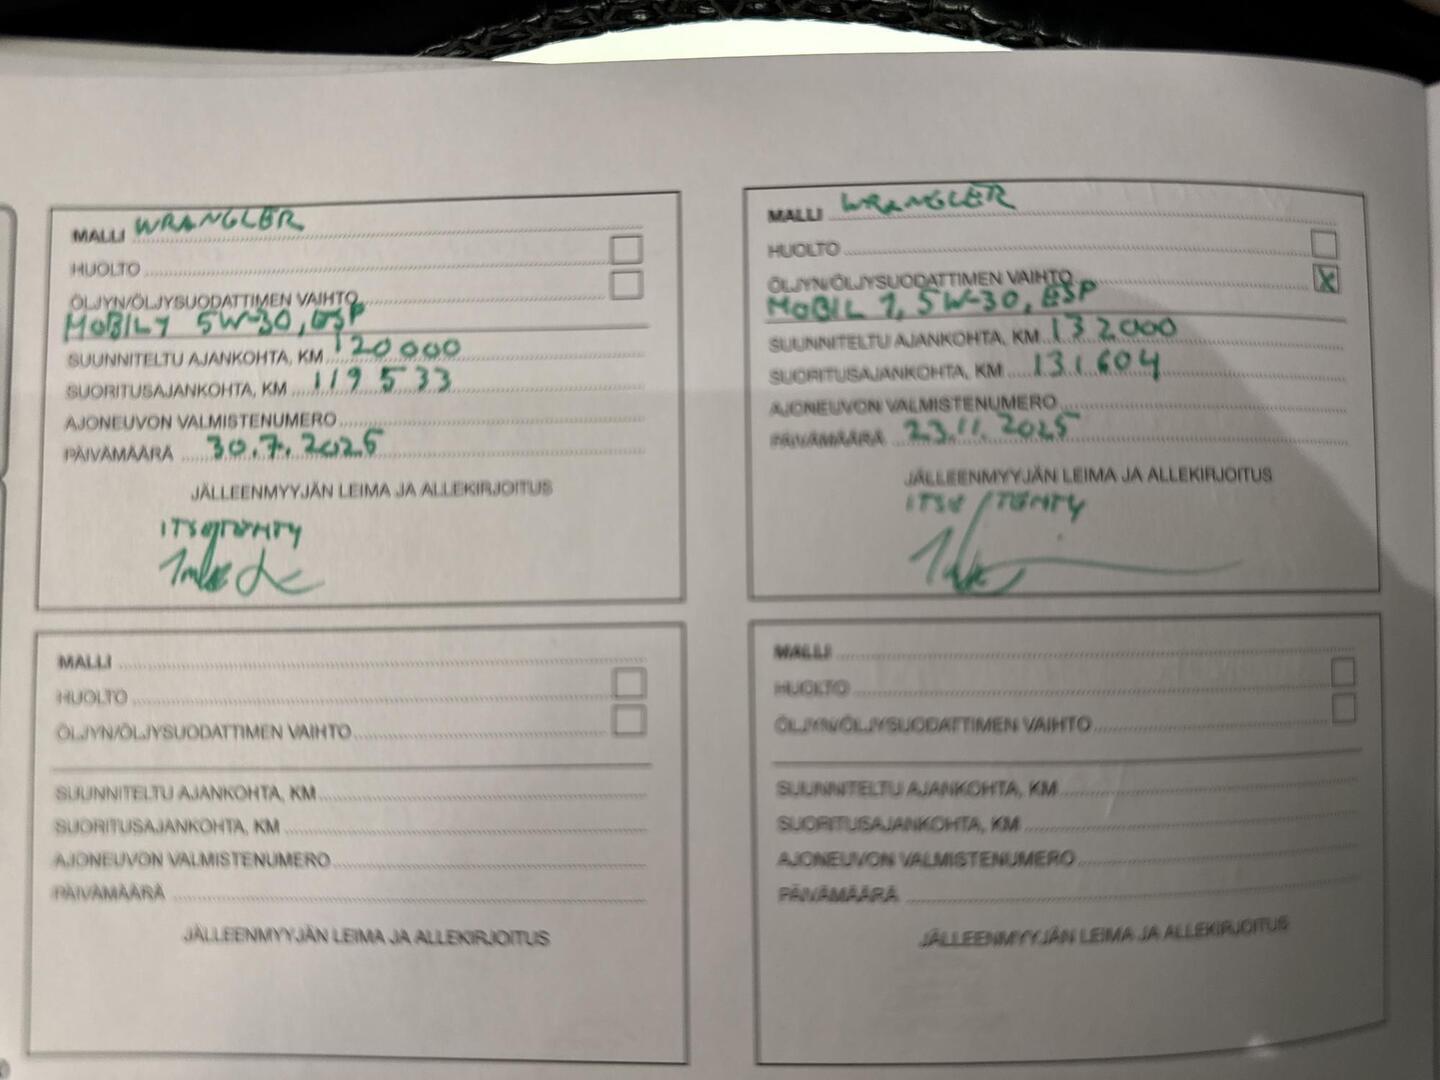 MALLI WRANGLER
HUOLTO
ÖLJYN/ÖLJYSUODATTIMEN VAIHTO
MOBIL 1 5W-30, ESP
SUUNNITELTU AJANKOHTA, KM 120000
SUORITUSAJANKOHTA, KM 119 533
AJONEUVON VALMISTENUMERO
PÄIVÄMÄÄRÄ 30.7.2025
JÄLLEENMYYJÄN LEIMA JA ALLEKIRJOITUS
ITSE/TEHTY
MALLI WRANGLER
HUOLTO
ÖLJYN/ÖLJYSUODATTIMEN VAIHTO X
MOBIL 1, 5W-30, ESP
SUUNNITELTU AJANKOHTA, KM 132000
SUORITUSAJANKOHTA, KM 131.604
AJONEUVON VALMISTENUMERO
PÄIVÄMÄÄRÄ 23.11.2025
JÄLLEENMYYJÄN LEIMA JA ALLEKIRJOITUS
ITSE/TEHTY
MALLI
HUOLTO
ÖLJYN/ÖLJYSUODATTIMEN VAIHTO
SUUNNITELTU AJANKOHTA, KM
SUORITUSAJANKOHTA, KM
AJONEUVON VALMISTENUMERO
PÄIVÄMÄÄRÄ
JÄLLEENMYYJÄN LEIMA JA ALLEKIRJOITUS
MALLI
HUOLTO
ÖLJYN/ÖLJYSUODATTIMEN VAIHTO
SUUNNITELTU AJANKOHTA, KM
SUORITUSAJANKOHTA, KM
AJONEUVON VALMISTENUMERO
PÄIVÄMÄÄRÄ
JÄLLEENMYYJÄN LEIMA JA ALLEKIRJOITUS